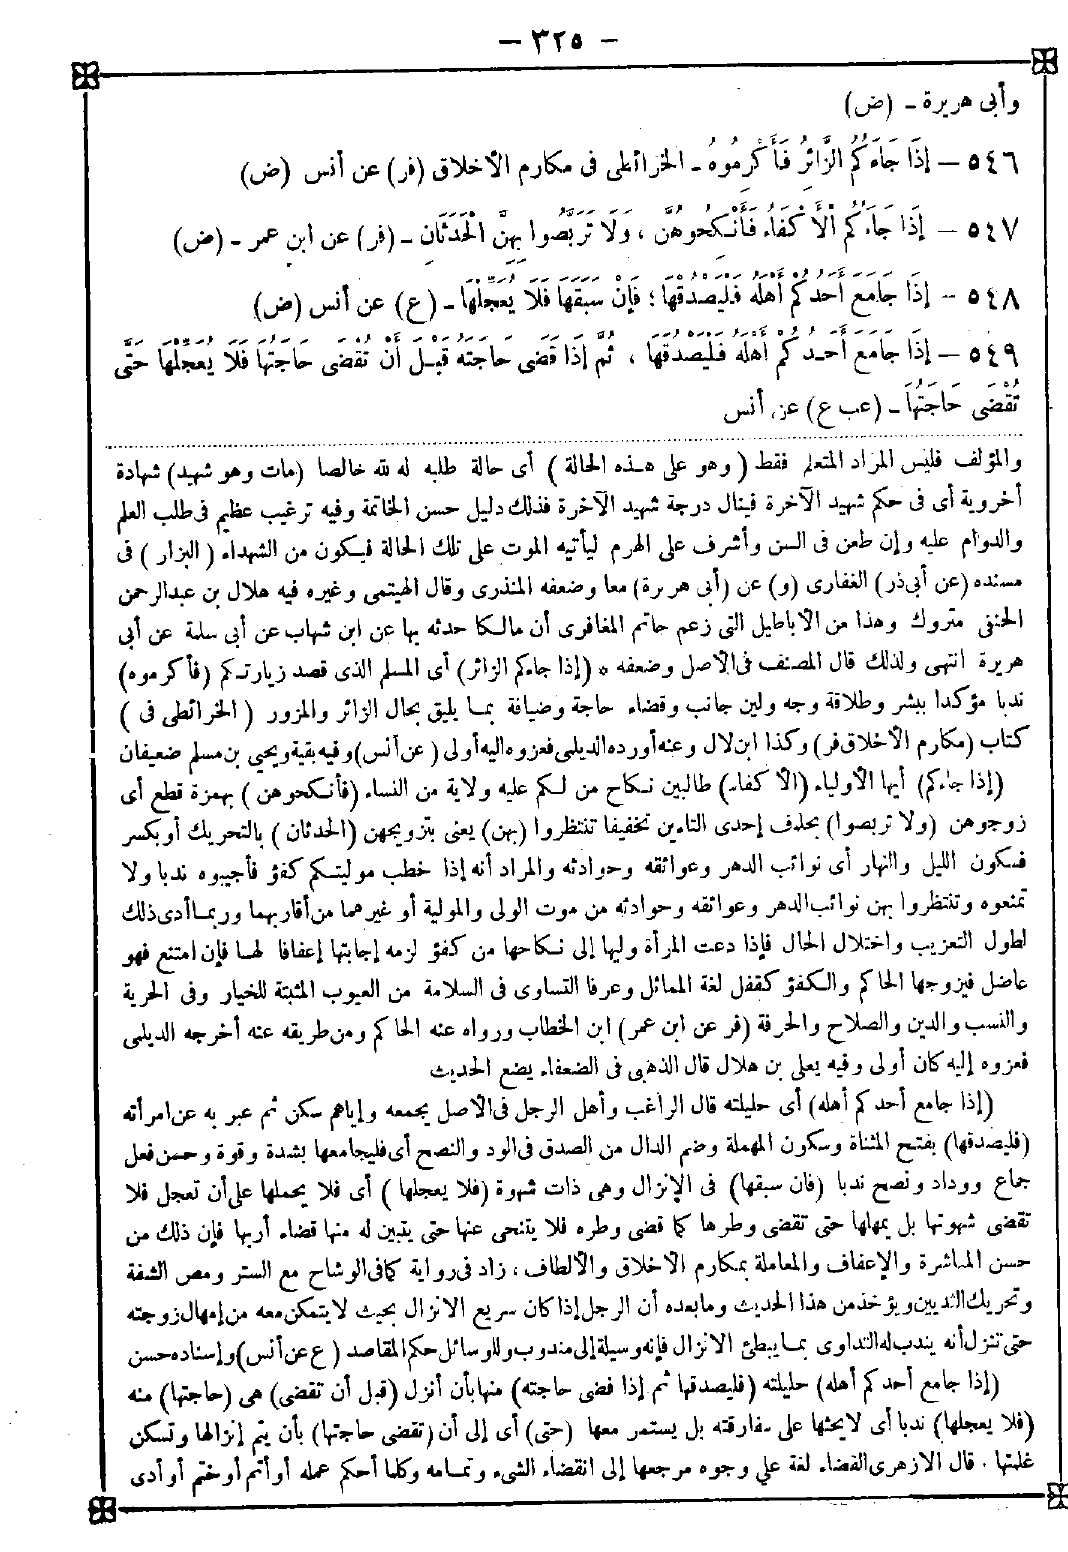 — ٣٢٥ —
وأبى هريرة - (ض)
٥٤٦ — إِذَا جَاءَكُمُ الزَّائِرُ فَأَكْرِمُوهُ - الخرائطى فى مكارم الأخلاق (فر) عن أنس (ض)
٥٤٧ — إِذَا جَاءَكُمُ الْأَكْفَاءُ فَأَنْكِحُوهُنَّ ، وَلَا تَرَبَّصُوا بِهِنَّ الْحَدَثَانِ - (فر) عن ابن عمر - (ض)
٥٤٨ — إِذَا جَامَعَ أَحَدُكُمْ أَهْلَهُ فَلْيَصْدُقْهَا ؛ فَإِنْ سَبَقَهَا فَلَا يُعَجِّلْهَا - (ع) عن أنس (ض)
٥٤٩ — إِذَا جَامَعَ أَحَدُكُمْ أَهْلَهُ فَلْيَصْدُقْهَا ، ثُمَّ إِذَا قَضَى حَاجَتَهُ قَبْلَ أَنْ تَقْضِىَ حَاجَتَهَا فَلَا يُعَجِّلْهَا حَتَّى
تَقْضِىَ حَاجَتَهَا - (عب ع) عن أنس
والمؤلف فليس المراد المتعلم فقط (وهو على هذه الحالة) أى حالة طلبه له لله خالصا (مات وهو شهيد) شهادة
أخروية أى فى حكم شهيد الآخرة فينال درجة شهيد الآخرة فذلك دليل حسن الخاتمة وفيه ترغيب عظيم فى طلب العلم
والدوام عليه وإن طعن فى السن وأشرف على الهرم ليأتيه الموت على تلك الحالة فيكون من الشهداء (البزار) فى
مسنده (عن أبى ذر) الغفارى (و) عن (أبى هريرة) معا وضعفه المنذرى وقال الهيتمى وغيره فيه هلال بن عبد الرحمن
الحنفى متروك وهذا من الأباطيل التى زعم حاتم المغافرى أن مالكا حدثه بها عن ابن شهاب عن أبى سلمة عن أبى
هريرة انتهى ولذلك قال المصنف فى الأصل وضعفه * (إذا جاءكم الزائر) أى المسلم الذى قصد زيارتكم (فأكرموه)
ندبا مؤكدا ببشر وطلاقة وجه ولين جانب وقضاء حاجة وضيافة بما يليق بحال الزائر والمزور (الخرائطى فى)
كتاب (مكارم الأخلاق فر) وكذا ابن لال وعنه أورده الديلمى فعزوه اليه أولى (عن أنس) وفيه بقية ويحيى بن مسلم ضعيفان
(إذا جاءكم) أيها الأولياء (الأكفاء) طالبين نكاح من لكم عليه ولاية من النساء (فأنكحوهن) بهمزة قطع أى
زوجوهن (ولا تربصوا) بحذف إحدى التاءين تخفيفا تنتظروا (بهن) يعنى بتزويجهن (الحدثان) بالتحريك أو بكسر
فسكون الليل والنهار أى نوائب الدهر وعوائقه وحوادثه والمراد أنه إذا خطب موليتكم كفؤ فأجيبوه ندبا ولا
تمنعوه وتنتظروا بهن نوائب الدهر وعوائقه وحوادثه من موت الولى والمولية أو غيرهما من أقاربهما وربما أدى ذلك
لطول التعزيب واختلال الحال فإذا دعت المرأة وليها إلى نكاحها من كفؤ لزمه إجابتها إعفافا لها فإن امتنع فهو
عاضل فيزوجها الحاكم والكفؤ كقفل لغة المماثل وعرفا التساوى فى السلامة من العيوب المثبتة للخيار وفى الحرية
والنسب والدين والصلاح والحرفة (فر عن ابن عمر) ابن الخطاب ورواه عنه الحاكم ومن طريقه عنه أخرجه الديلمى
فعزوه إليه كان أولى وفيه يعلى بن هلال قال الذهبى فى الضعفاء يضع الحديث
(إذا جامع أحدكم أهله) أى حليلته قال الراغب وأهل الرجل فى الأصل يجمعه وإياهم سكن ثم عبر به عن امرأته
(فليصدقها) بفتح المثناة وسكون المهملة وضم الدال من الصدق فى الود والنصح أى فليجامعها بشدة وقوة وحسن فعل
جماع ووداد ونصح ندبا (فان سبقها) فى الإنزال وهى ذات شهوة (فلا يعجلها) أى فلا يحملها على أن تعجل فلا
تقضى شهوتها بل يمهلها حتى تقضى وطرها كما قضى وطره فلا يتنحى عنها حتى يتبين له منها قضاء أربها فإن ذلك من
حسن المباشرة والإعفاف والمعاملة بمكارم الأخلاق والألطاف ، زاد فى رواية كما فى الوشاح مع الستر ومص الشفة
وتحريك الثديين ويؤخذ من هذا الحديث وما بعده أن الرجل إذا كان سريع الانزال بحيث لا يتمكن معه من إمهال زوجته
حتى تنزل أنه يندب له التداوى بما يبطئ الانزال فإنه وسيلة إلى مندوب وللوسائل حكم المقاصد (ع عن أنس) وإسناده حسن
(إذا جامع أحدكم أهله) حليلته (فليصدقها ثم إذا قضى حاجته) منها بأن أنزل (قبل أن تقضى) هى (حاجتها) منه
(فلا يعجلها) ندبا أى لا يحثها على مفارقته بل يستمر معها (حتى) أى إلى أن (تقضى حاجتها) بأن يتم إنزالها وتسكن
غلمتها . قال الازهرى القضاء لغة على وجوه مرجعها إلى انقضاء الشىء وتمامه وكلما أحكم عمله أو أتم أو ختم أو أدى